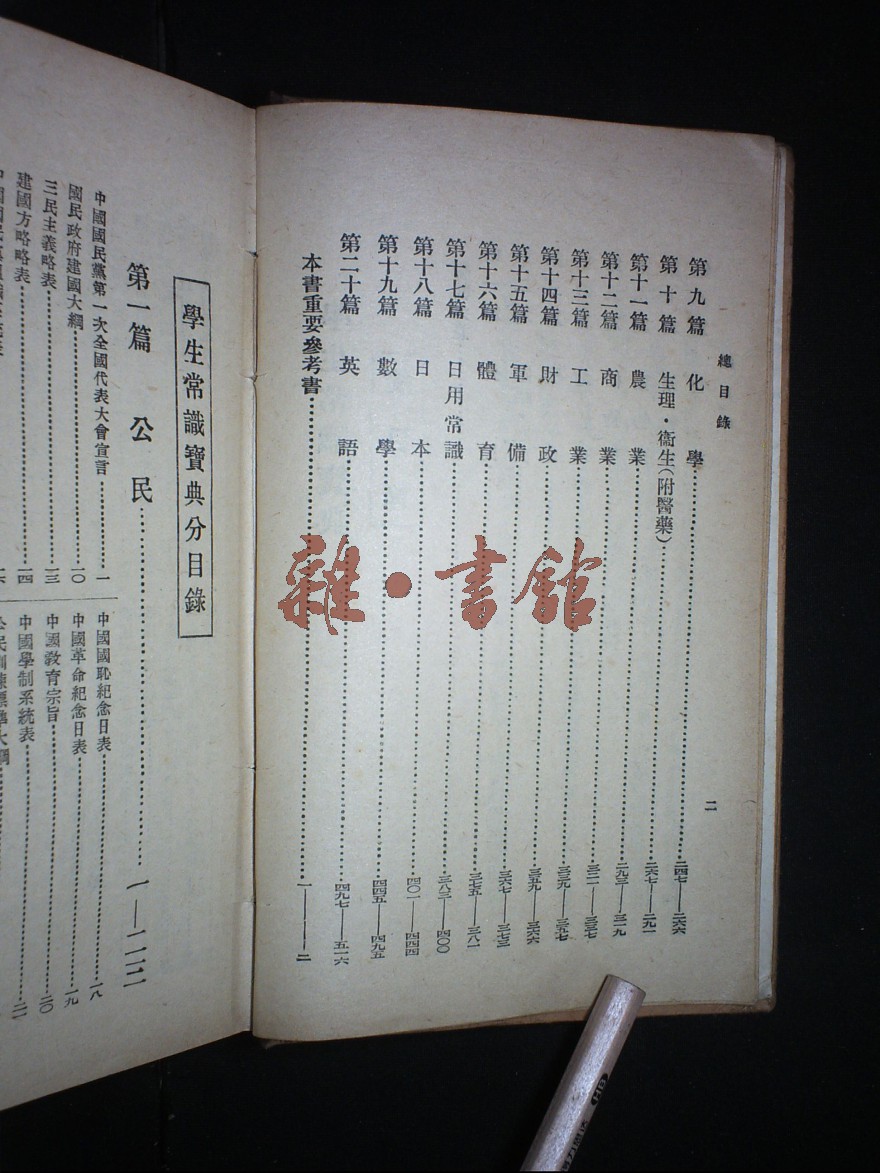 總目錄
二
第九篇 化學……二四七—二六六
第十篇 生理·衞生(附醫藥)……二六七—二九一
第十一篇 農業……二九三—三一九
第十二篇 商業……三二一—三三七
第十三篇 工業……三三九—三五七
第十四篇 財政……三五九—三六六
第十五篇 軍備……三六七—三七三
第十六篇 體育……三七五—三八一
第十七篇 日用常識……三八三—四〇〇
第十八篇 日本……四〇一—四四四
第十九篇 數學……四四五—四九五
第二十篇 英語……四九七—五一六
本書重要參考書……一—二
學生常識寶典分目錄
第一篇 公民……一—二二
中國國民黨第一次全國代表大會宣言……一
國民政府建國大綱……一〇
三民主義略表……一三
建國方略略表……一四
中國國恥紀念日表……一八
中國革命紀念日表……一九
中國教育宗旨……二〇
中國學制系統表……二一
雜·書館
HB